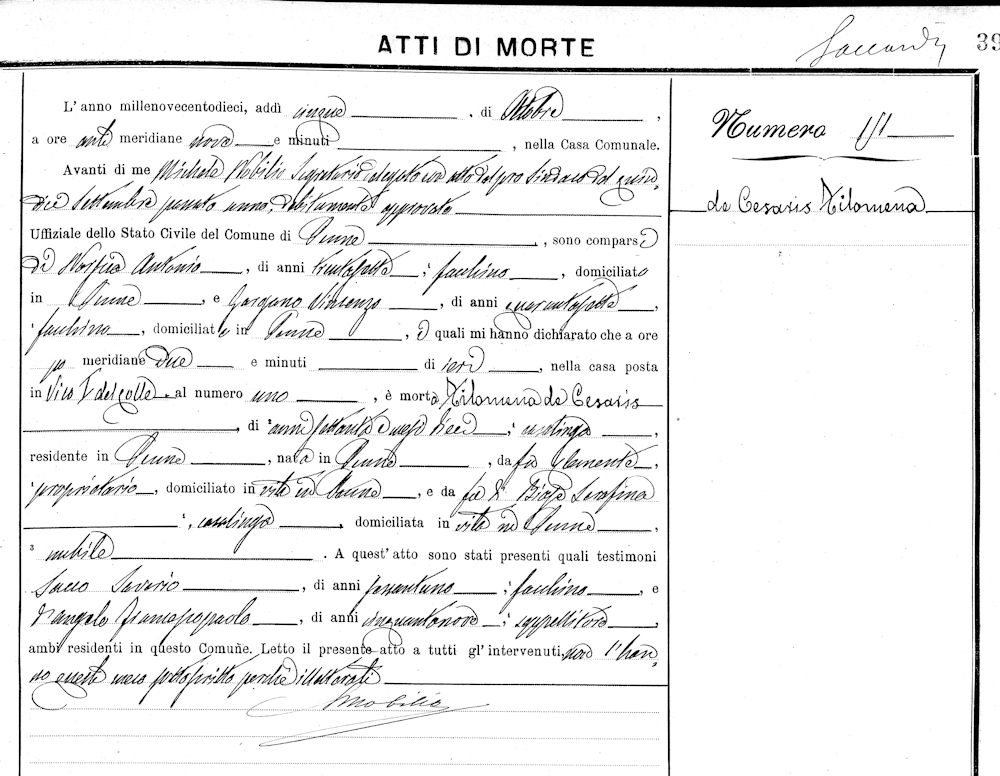 ATTI DI MORTE
39
L' anno millenovecentodieci, addì cinque, di Ottobre,
a ore anti meridiane nove e minuti , nella Casa Comunale.
Avanti di me Michele Nobilio Segretario delegato con atto del pro Sindaco del quin-
dici Settembre passato anno, debitamente approvato
Uffiziale dello Stato Civile del Comune di Penne, sono comparsi
Antonio, di anni trentasette; facchino, domiciliato
in Penne, e Gargano Vincenzo, di anni quarantasette,
facchino, domiciliato in Penne, i quali mi hanno dichiarato che a ore
po meridiane due e minuti di ieri, nella casa posta
in Vico I del Colle al numero uno, è morta Filomena de Cesaris
, di anni settanta e mesi dieci; casalinga,
residente in Penne, nata in Penne, da fu Clemente,
proprietario, domiciliato in vita in Penne, e da fu Di Biase Serafina
, casalinga, domiciliata in vita in Penne,
nubile. A quest' atto sono stati presenti quali testimoni
Sacco Saverio, di anni sessantuno; facchino, e
D'angelo Francescopaolo, di anni cinquantanove; seppellitore,
ambi residenti in questo Comune. Letto il presente atto a tutti gl' intervenuti, non l'han-
no questi meco sottoscritto perchè illetterati
Nobilio
Numero 151
de Cesaris Filomena